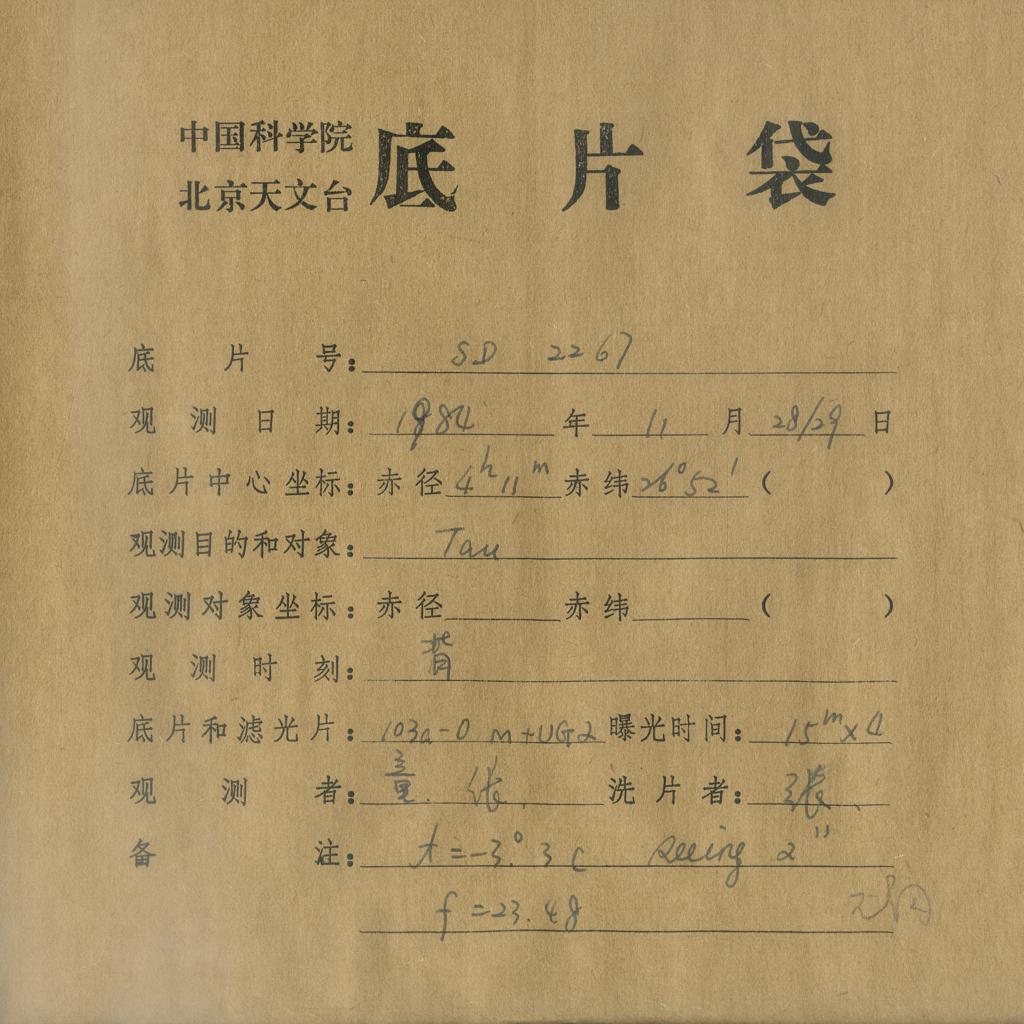 中国科学院
北京天文台
底片袋
底片号： SD 2267
观测日期： 1984 年 11 月 28/29 日
底片中心坐标：赤径 4h 11m 赤纬 26°52′ （ ）
观测目的和对象： Tau
观测对象坐标：赤径 赤纬 （ ）
观测时刻： 背
底片和滤光片： 103a-O M+UG2 曝光时间： 15m×4
观测者： 童. 张. 洗片者： 张、
备注： t=-3°.3 C seeing 2″
f=23.48